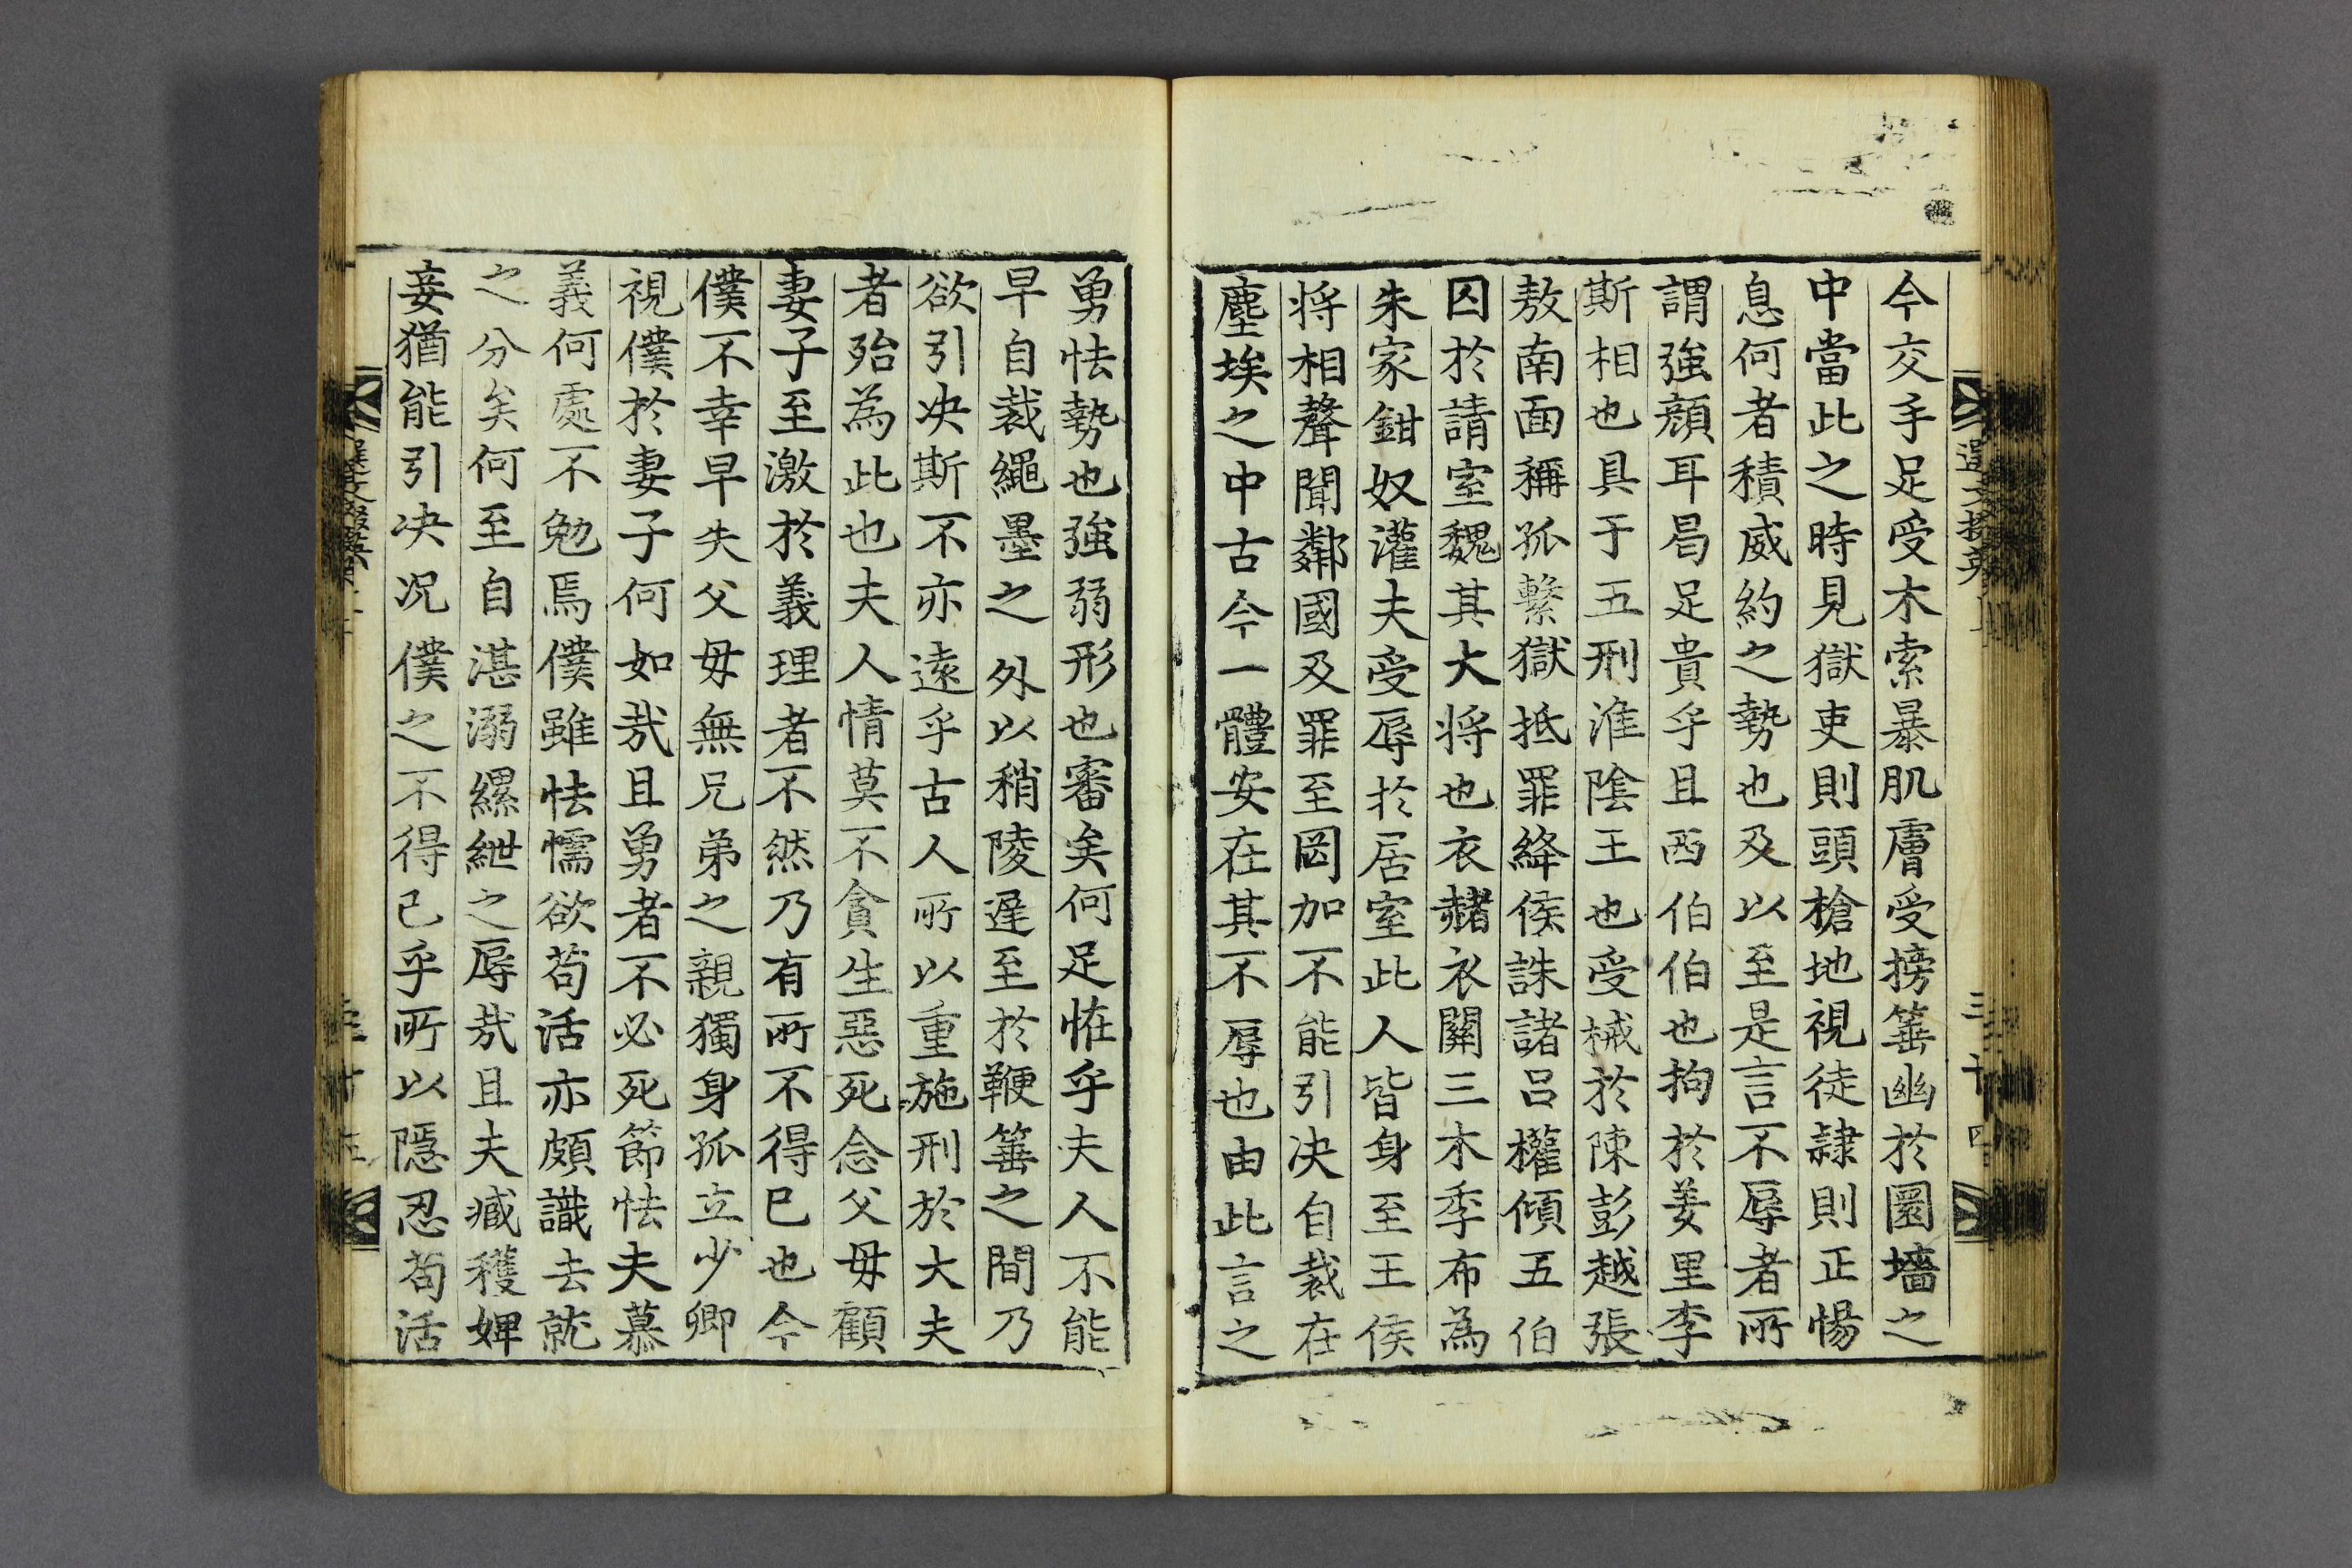 今交手足受木索暴肌膚受搒箠幽於圜墻之
中當此之時見獄吏則頭槍地視徒隷則正惕
息何者積威約之勢也及以至是言不辱者所
謂強顔耳曷足貴乎且西伯伯也拘於羑里李
斯相也具于五刑淮陰王也受械於陳彭越張
敖南面稱孤繫獄抵罪絳侯誅諸呂權傾五伯
囚於請室魏其大将也衣赭衣關三木季布為
朱家鉗奴灌夫受辱於居室此人皆身至王侯
将相聲聞鄰國及罪至罔加不能引决自裁在
塵埃之中古今一體安在其不辱也由此言之
勇怯勢也強弱形也審矣何足恠乎夫人不能
早自裁繩墨之外以稍陵遲至於鞭箠之間乃
欲引决斯不亦遠乎古人所以重施刑於大夫
者殆為此也夫人情莫不貪生惡死念父毋顧
妻子至激於義理者不然乃有所不得巳也今
僕不幸早失父毋無兄弟之親獨身孤立少卿
視僕於妻子何如㢤且勇者不必死節怯夫慕
義何處不勉焉僕雖怯懦欲茍活亦頗識去就
之分矣何至自湛溺縲紲之辱㢤且夫臧穫婢
妾猶能引决况僕之不得已乎所以隱忍茍活